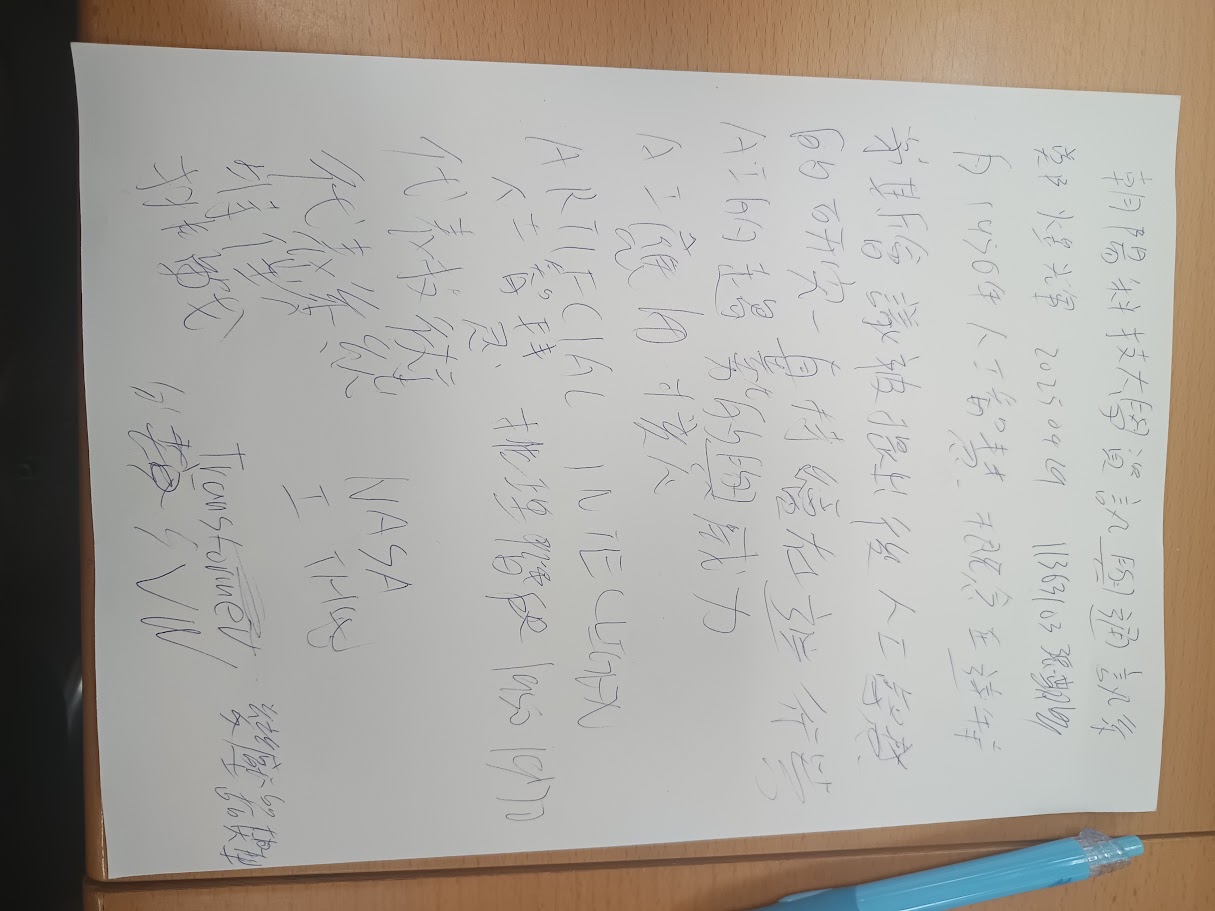 朝陽科技大學資訊與通訊系
鄭煌輝 20250929 11363103 張
自1956年人工智慧概念在達特
茅斯會議被提出後人工智慧
的研究一直持續在進行著
AI的趨勢的與威力
AI應用模式
ARTIFCIAL INTELLIGEN
人工智慧 推理階段 1950 1970
代表技術
代表系統 NASA
特性
Transformer 變壓器模型
挑戰
分類 SVM